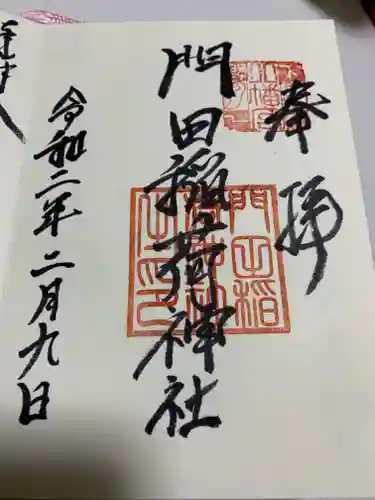 奉拝
門田稲荷神社
令和二年二月九日